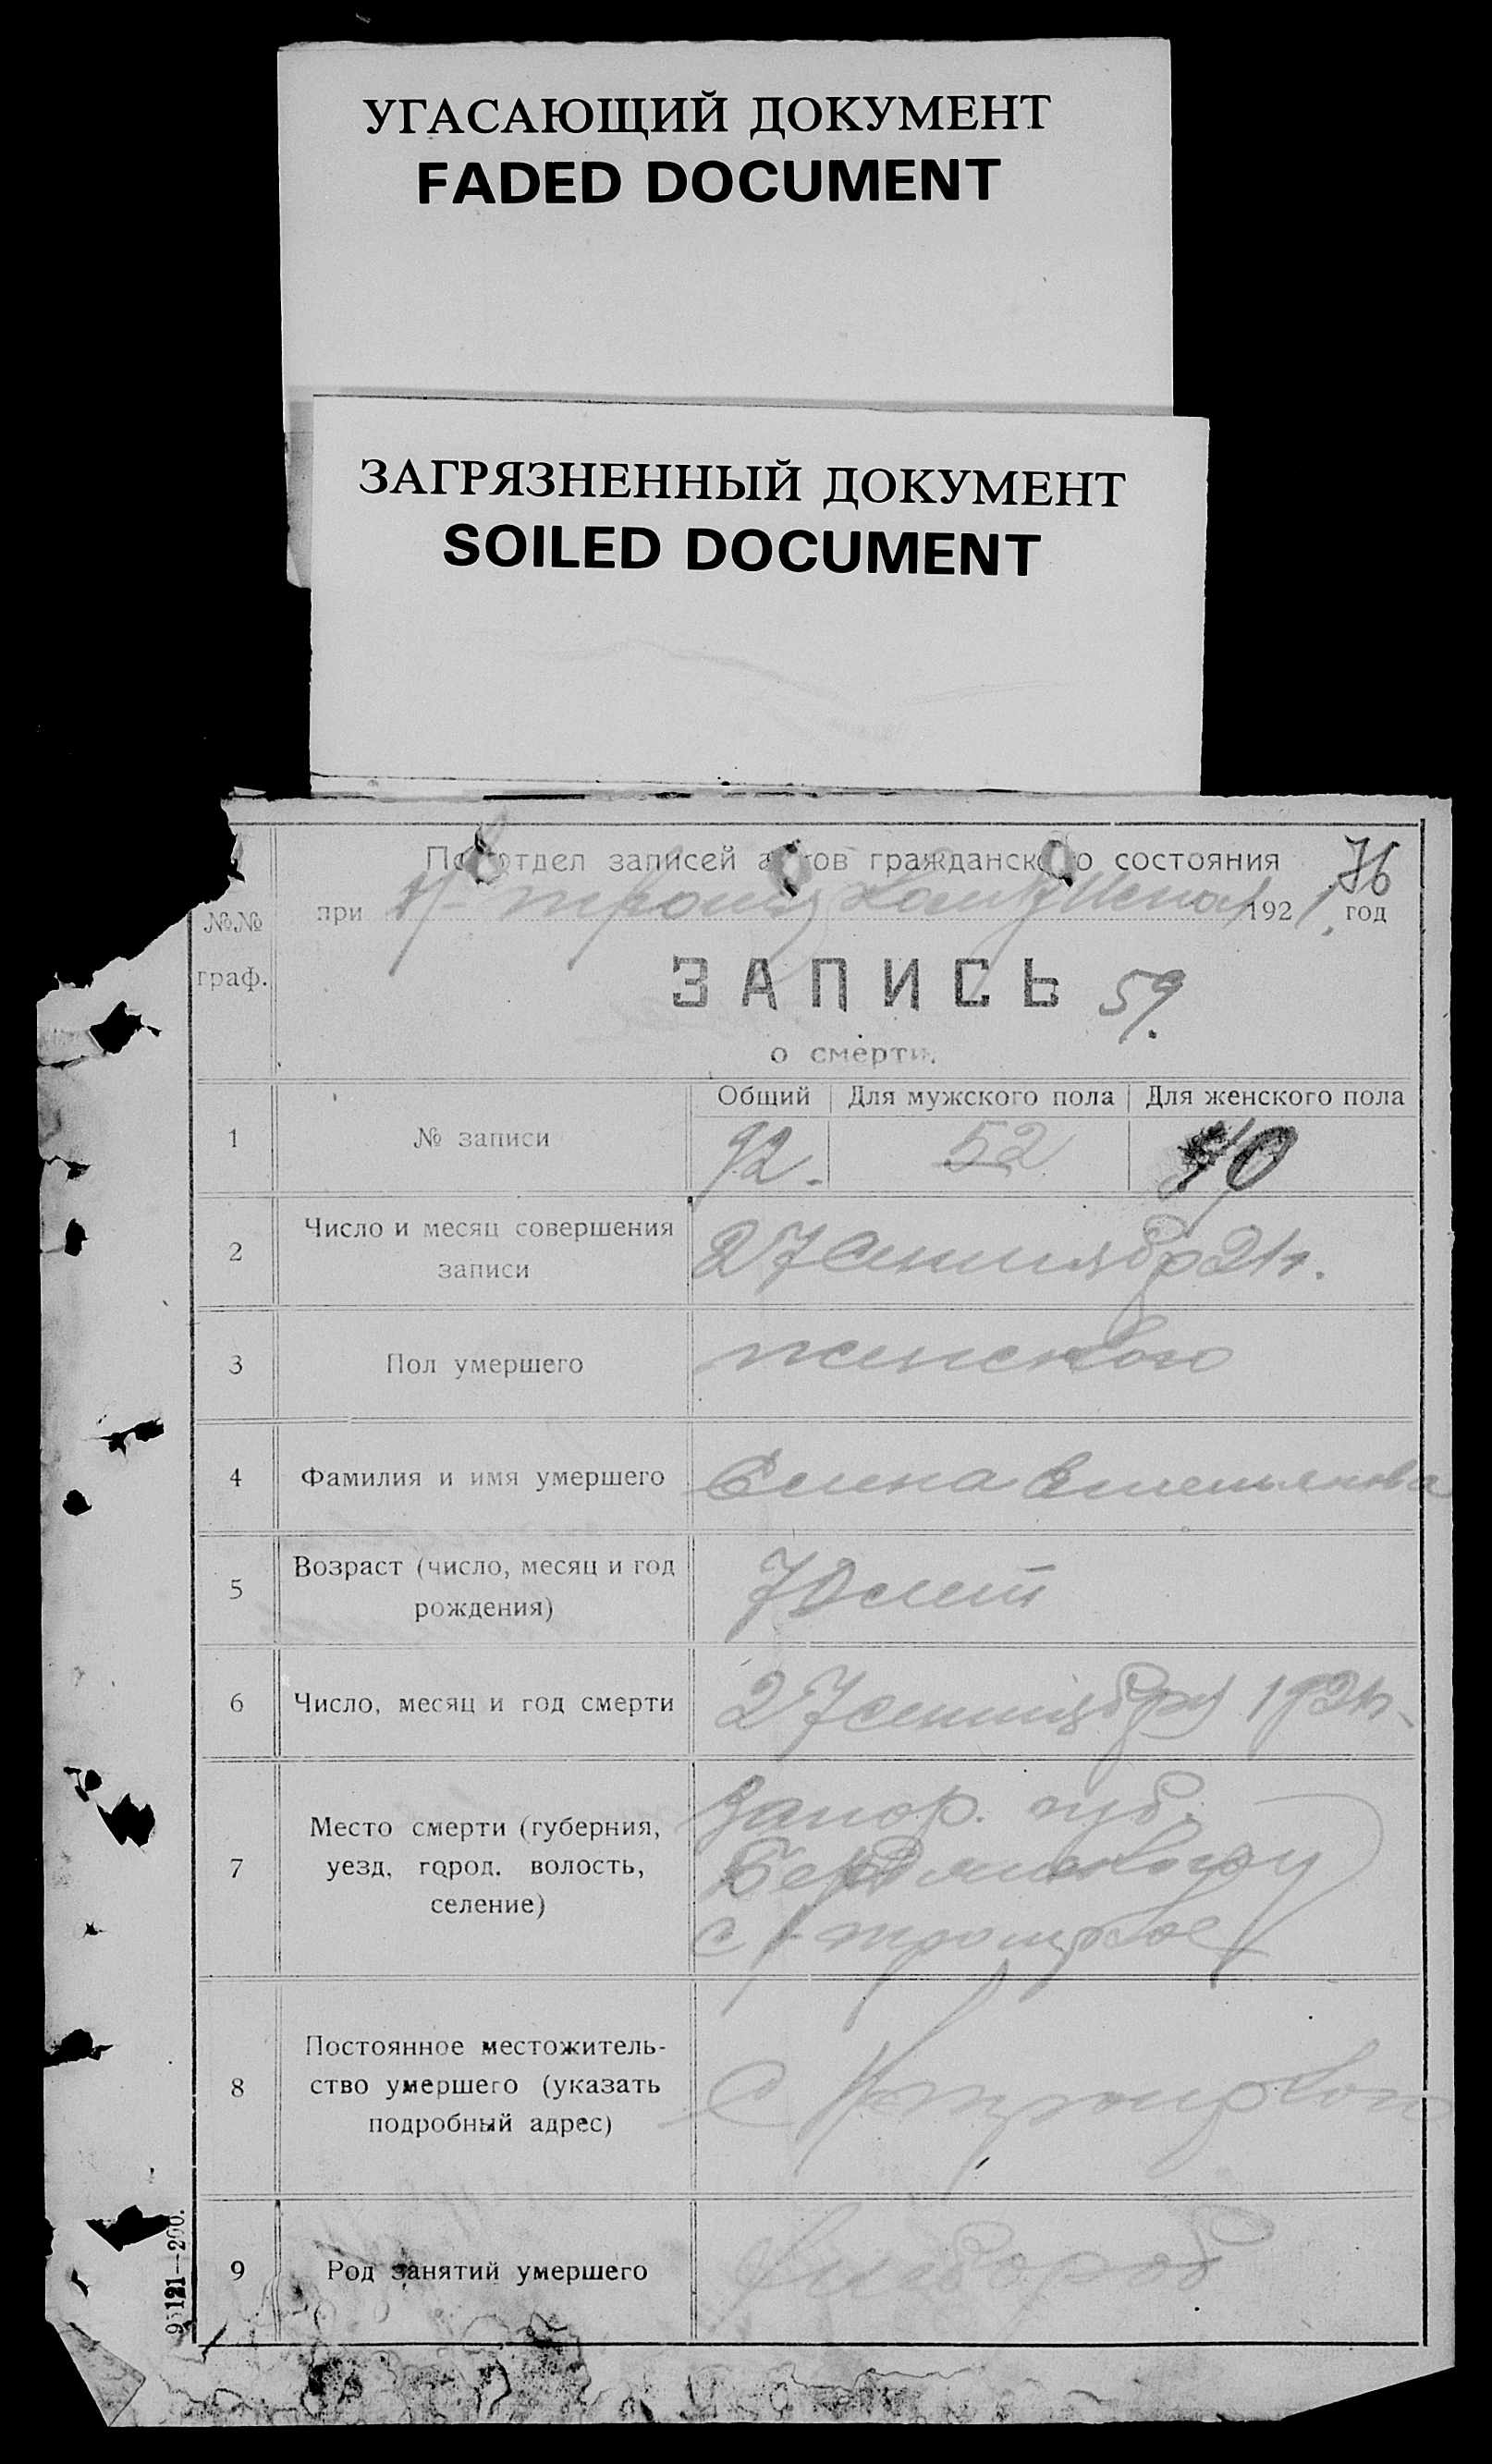 УГАСАЮЩИЙ ДОКУМЕНТ
FADED DOCUMENT
ЗАГРЯЗНЕННЫЙ ДОКУМЕНТ
SOILED DOCUMENT
отдел записей гражданского состояния 76
№№ при 1921 год
граф.
ЗАПИСЬ 59.
о смерти.
Общий Для мужского пола Для женского пола
1 № записи 92. 52 40
2 Число и месяц совершения
записи 27 21г.
3 Пол умершего женского
4 Фамилия и имя умершего Елена Емельянова
5 Возраст (число, месяц и год
рождения) 70 лет
6 Число, месяц и год смерти 27 сентября 1921г.
7 Место смерти (губерния,
уезд, город, волость,
селение)
Запор. губ.
Бердянского у
с
8 Постоянное местожитель-
ство умершего (указать
подробный адрес) с
9 Род занятий умершего хлебороб